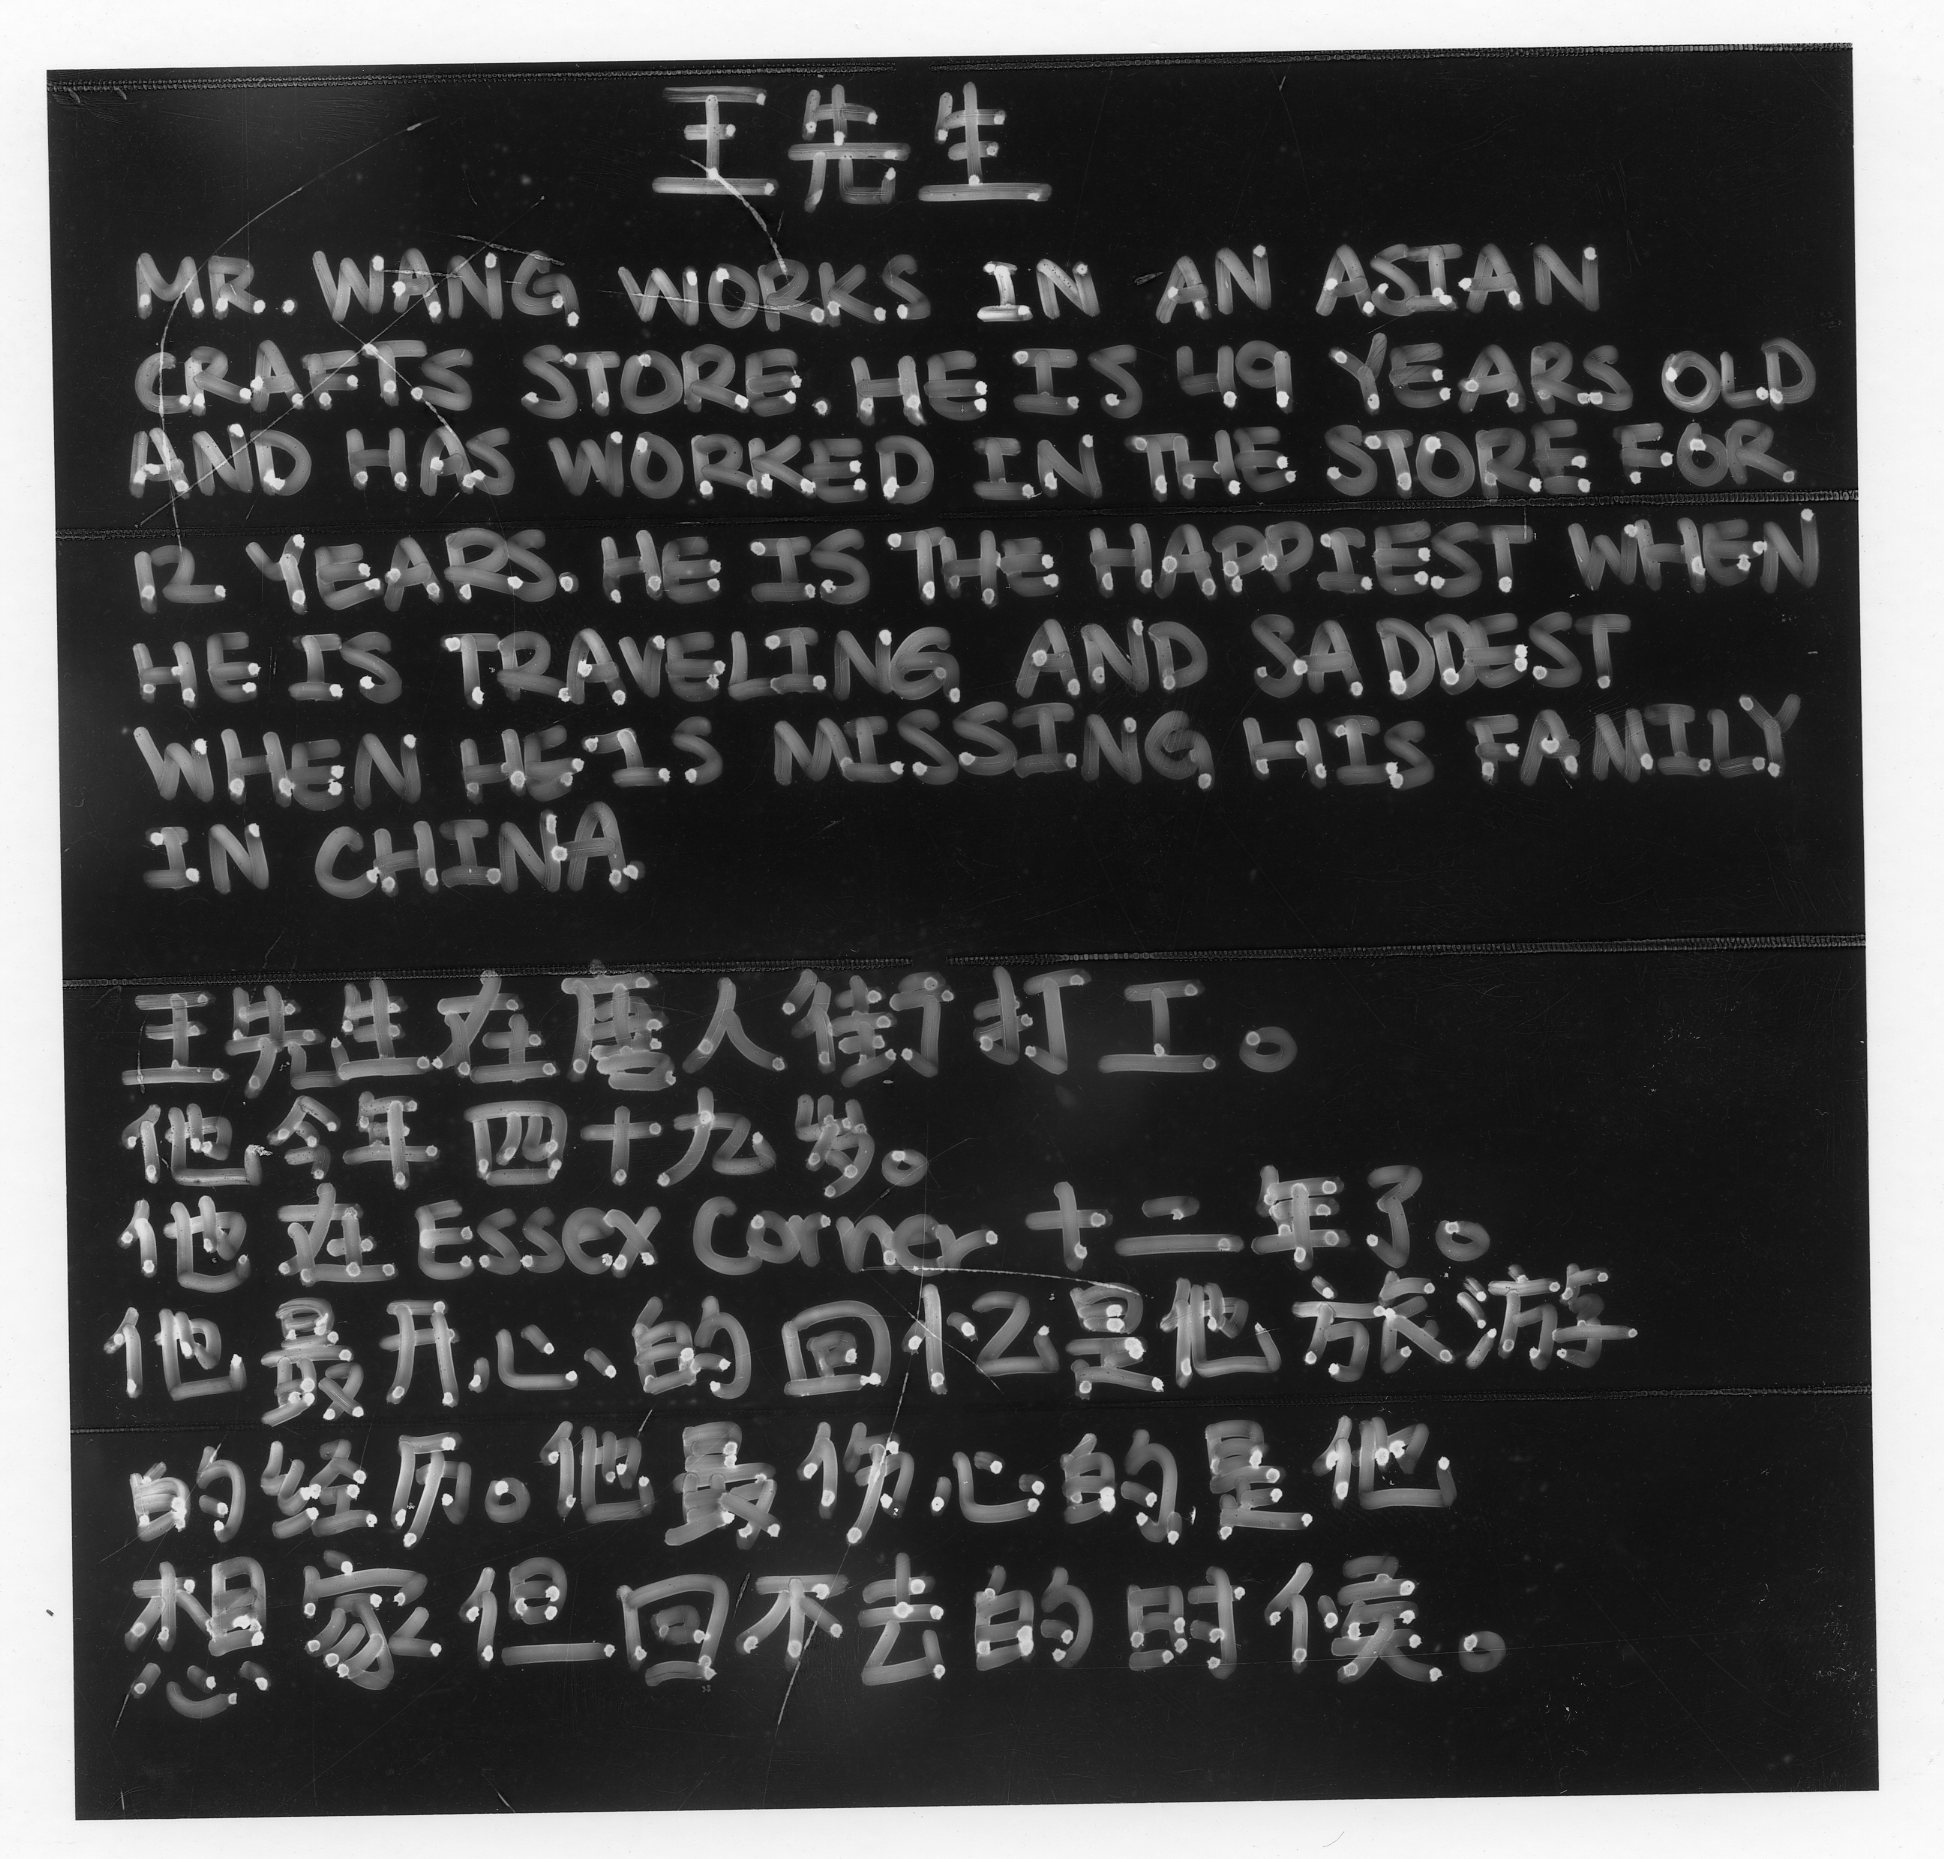 王先生
MR. WANG WORKS IN AN ASIAN
CRAFTS STORE. HE IS 49 YEARS OLD
AND HAS WORKED IN THE STORE FOR
12 YEARS. HE IS THE HAPPIEST WHEN
HE IS TRAVELING AND SADDEST
WHEN HE IS MISSING HIS FAMILY
IN CHINA.
王先生在唐人街打工。
他今年四十九岁。
他在Essex Corner十二年了。
他最开心的回忆是他旅游
的经历。他最伤心的是他
想家但回不去的时候。